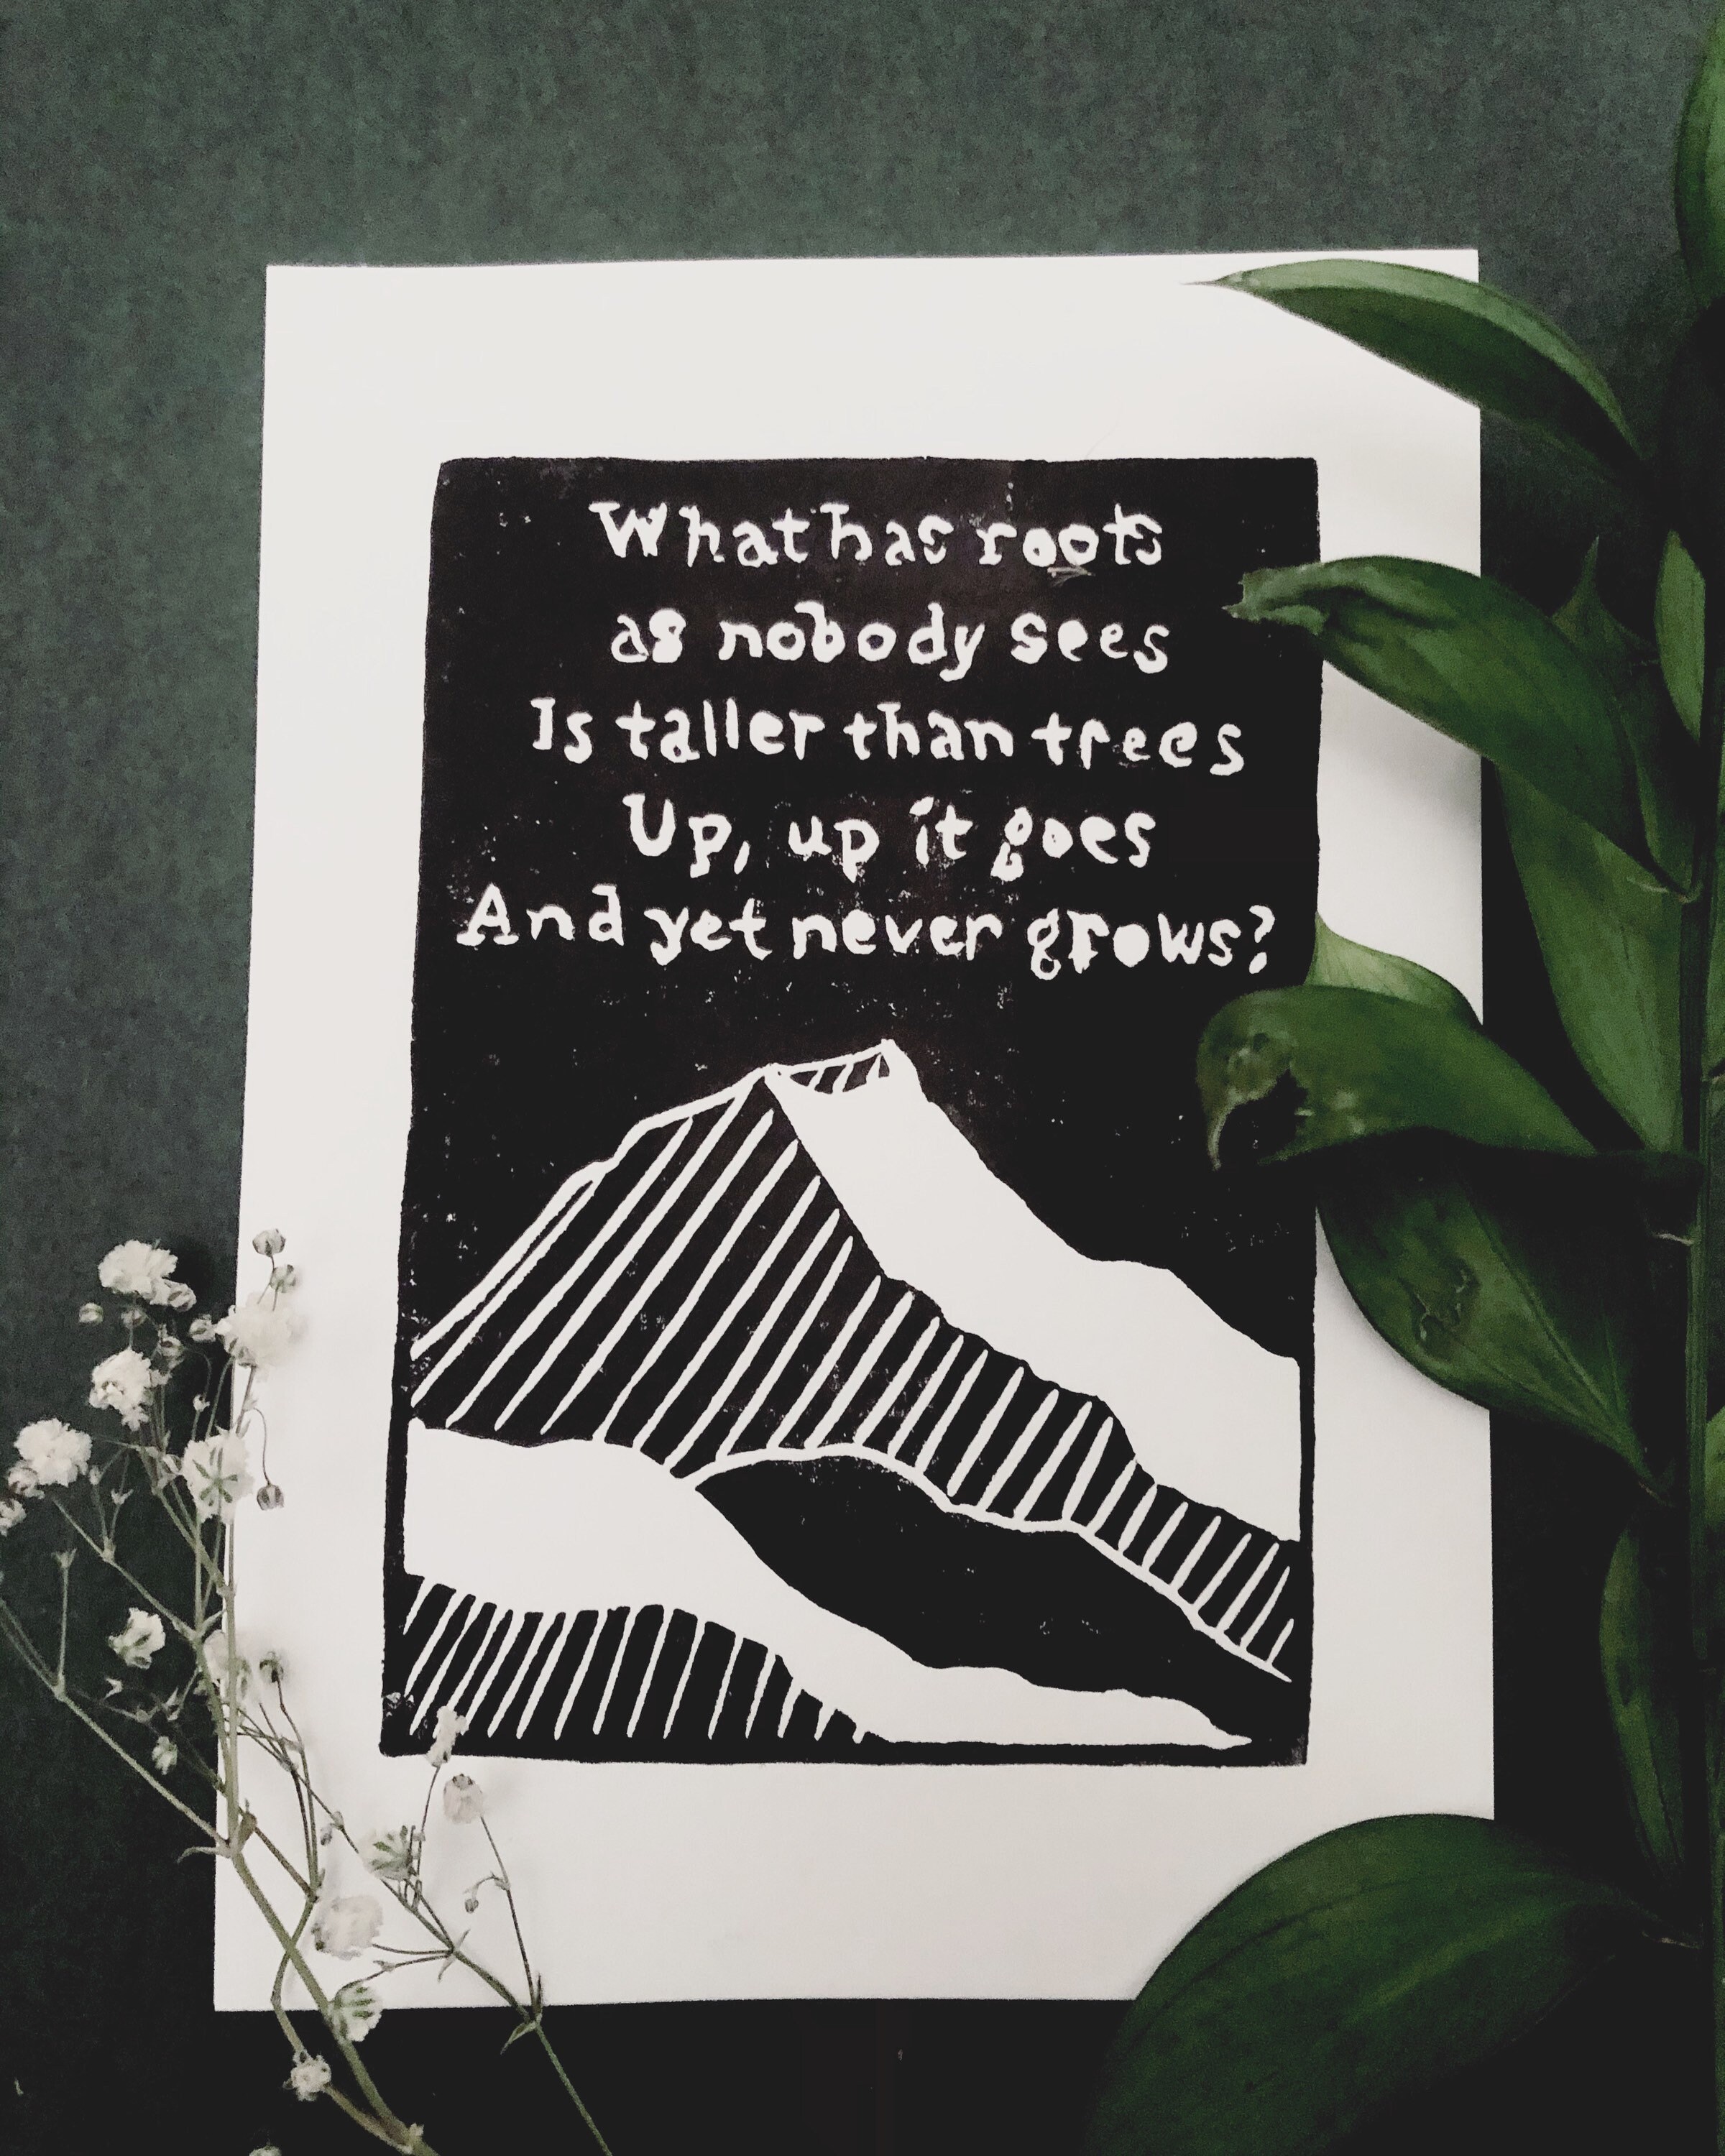 What has roots
as nobody sees
Is taller than trees
Up, up it goes
And yet never grows?